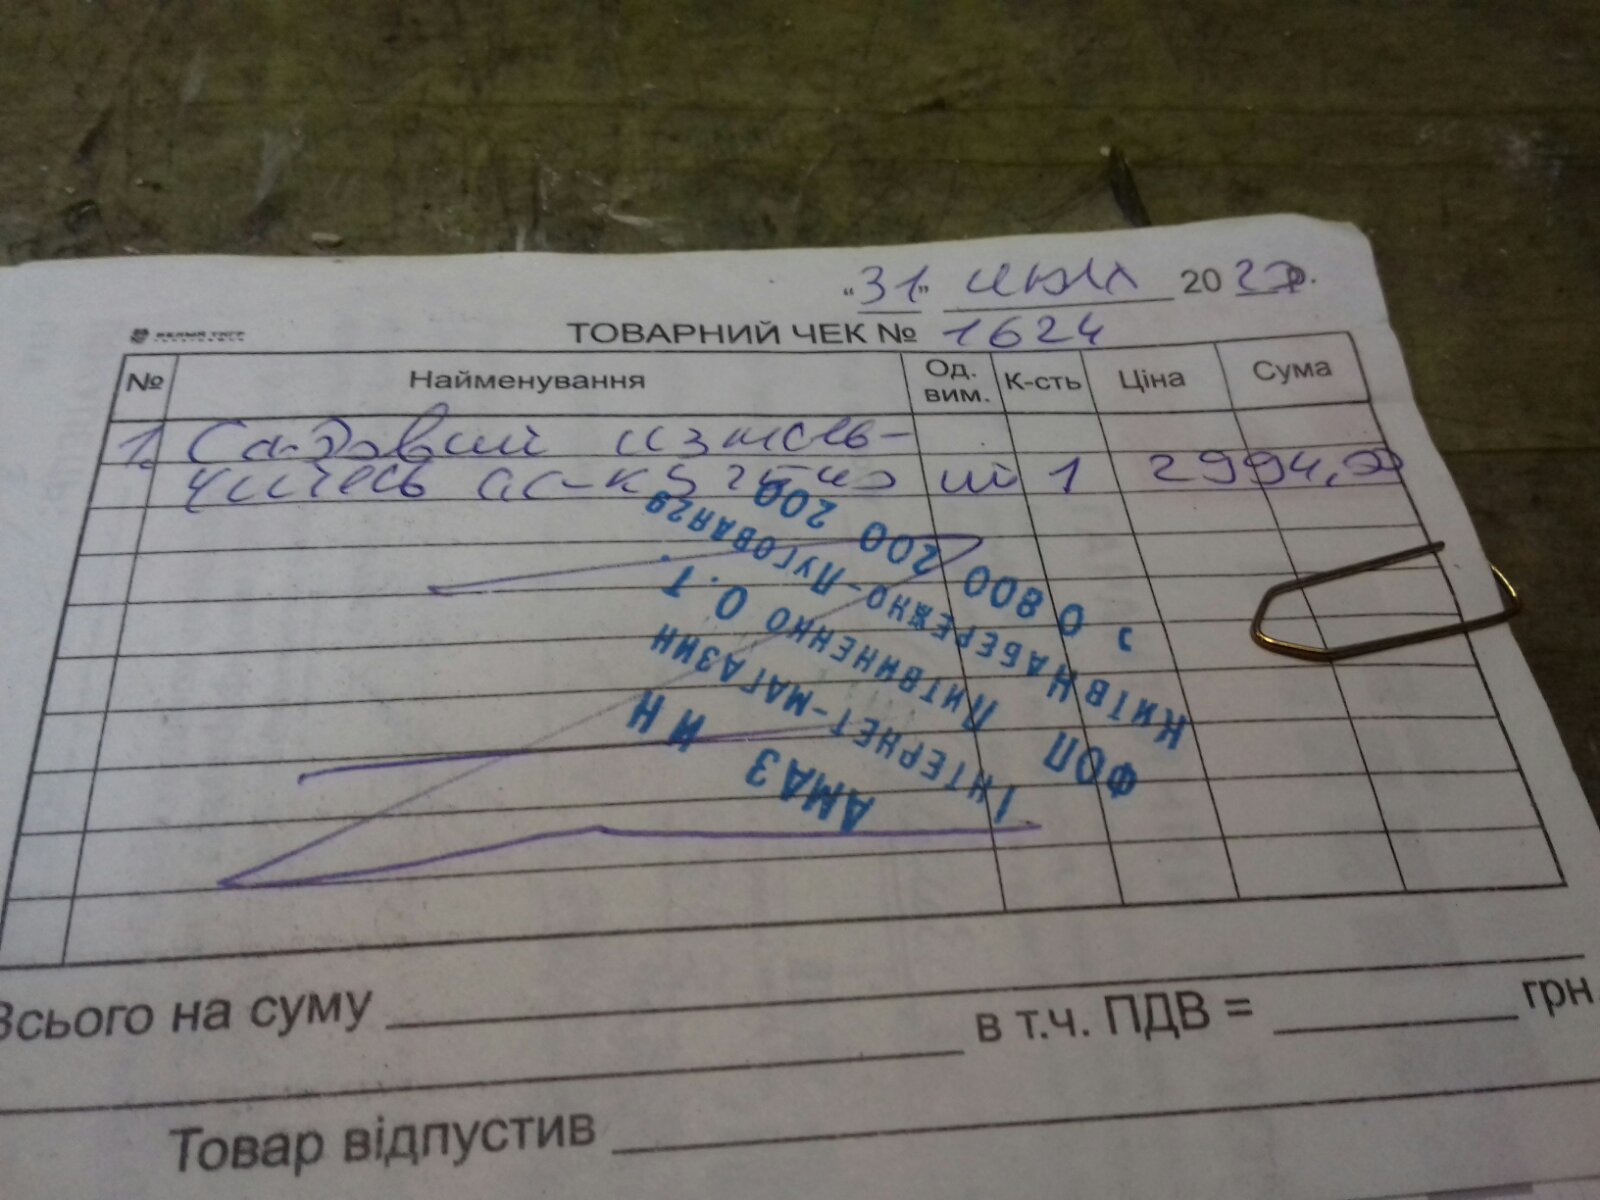 "31" июля 20 22 р.
ТОВАРНИЙ ЧЕК № 1624
№ Найменування Од. вим. К-сть Ціна Сума
1. Садовий измель-
читель шт 1 2994,00
АМАЗ И Н
ІНТЕРНЕТ-МАГАЗИН
ФОП ЛИТВИНЕНКО О.Т.
НАБЕРЕЖНО-ЛУГОВАЯ29
0 800 200 200
Всього на суму
в т.ч. ПДВ = грн
Товар відпустив